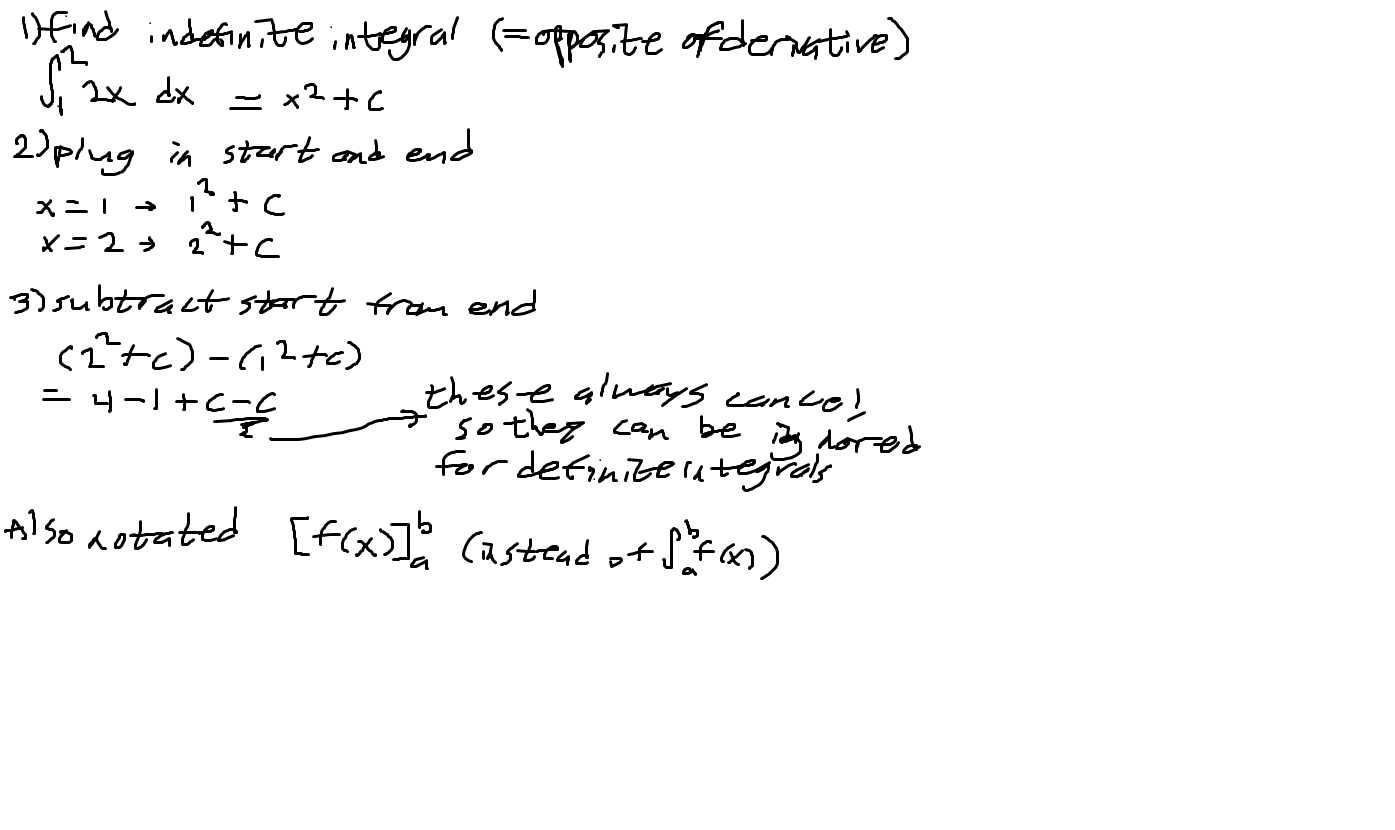 1) find indefinite integral (= opposite of derivative)
∫₁² 2x dx = x² + C
2) plug in start and end
x = 1 → 1² + C
x = 2 → 2² + C
3) subtract start from end
(2² + C) − (1² + C)
= 4 − 1 + C − C
these always cancel,
so they can be ignored
for definite integrals
Also notated [f(x)]ₐᵇ (instead of ∫ₐᵇ f(x))